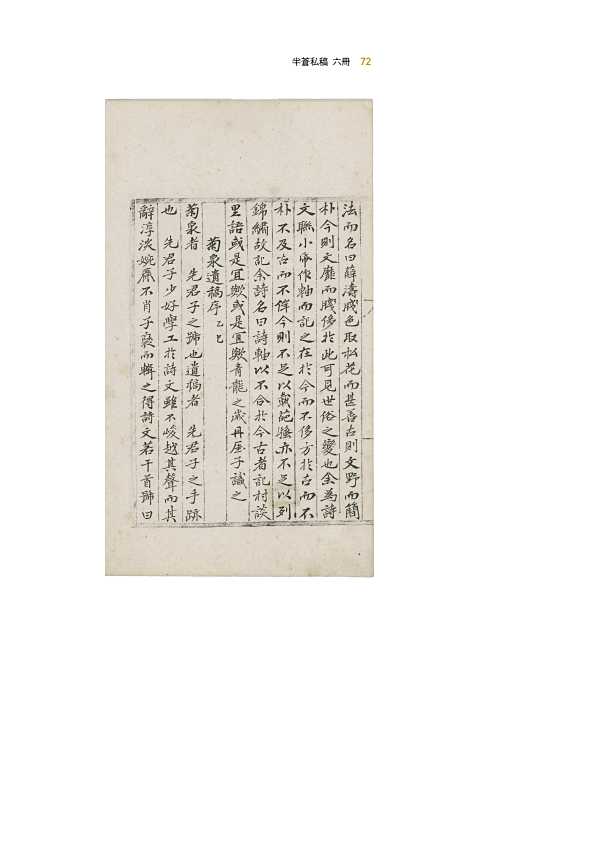 半蒼私稿 六冊 72
法而名曰薛濤牋色取松花而甚善古則文野而簡
朴今則文靡而牋侈於此可見世俗之變也余為詩
文聯小帋作軸而記之在於今而不侈方於古而不
朴不及古而不侔今則不足以載葩騷亦不足以列
錦繡故記余詩名曰詩軸以不合於今古者記村談
里語或是宜歟或是宜歟青龍之歲丹厓子識之
菊泉遺稿序 乙巳
菊泉者 先君子之號也遺稿者 先君子之手跡
也 先君子少好學工於詩文雖不峻越其聲而其
辭淳淡婉 不肖子裒而輯之得詩文若干首號曰